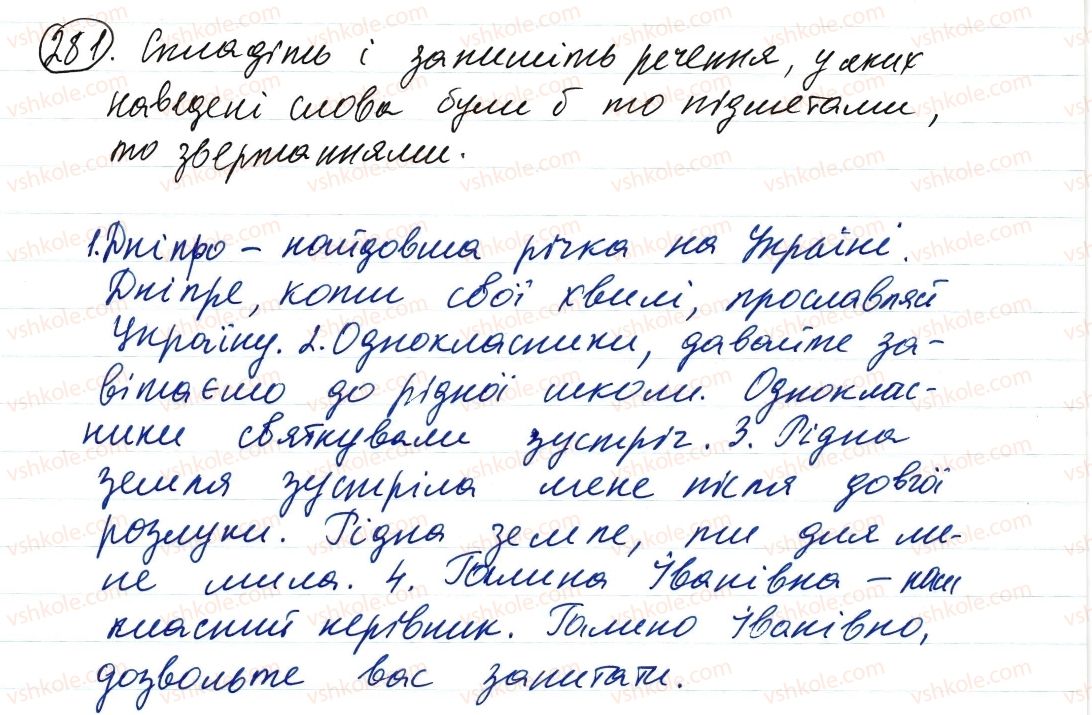 281. Складіть і запишіть речення, у яких
наведені слова були б то підметами,
то звертаннями.
1. Дніпро – найдовша річка на Україні.
Дніпре, коти свої хвилі, прославляй
Україну. 2. Однокласники, давайте за-
вітаємо до рідної школи. Одноклас-
ники святкували зустріч. 3. Рідна
земля зустріла мене після довгої
розлуки. Рідна земле, ти для ме-
не мила. 4. Галина Іванівна – наш
класний керівник. Галино Іванівно,
дозвольте вас запитати.